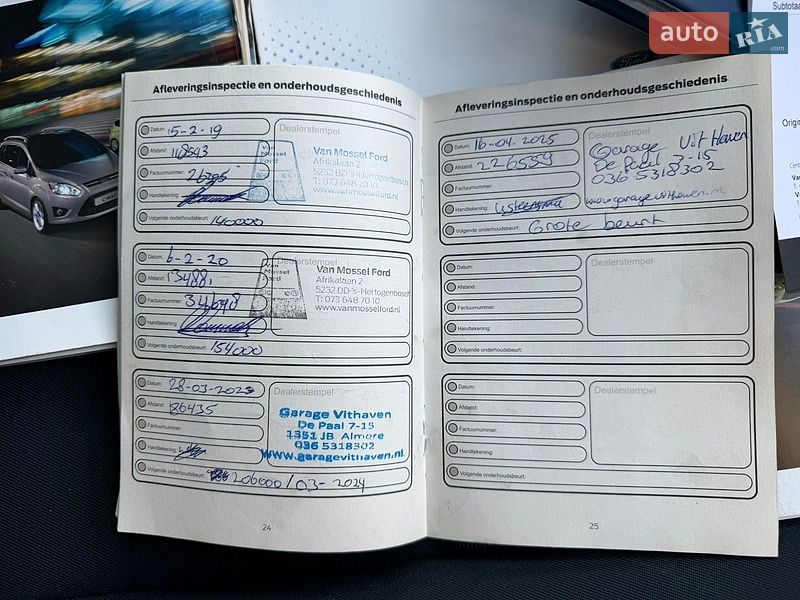 Subtotaa
auto RIA
.com
Afleveringsinspectie en onderhoudsgeschiedenis
Datum: 15-2-19
Afstand: 118593
Factuurnummer:
Handtekening:
Volgende onderhoudsbeurt: 140000
Dealerstempel
Van Mossel Ford
Afrikalaan 2
5232 BD 's-Hertogenbosch
T: 073 648 70 10
www.vanmosselford.nl
Datum: 6-2-20
Afstand: 13488
Factuurnummer: 34698
Handtekening:
Volgende onderhoudsbeurt: 154000
Dealerstempel
Van Mossel Ford
Afrikalaan 2
5232 BD 's-Hertogenbosch
T: 073 648 70 10
www.vanmosselford.nl
Datum: 28-03-2023
Afstand: 186435
Factuurnummer:
Handtekening:
Volgende onderhoudsbeurt: 206000/03-2024
Dealerstempel
Garage Vithaven
De Paal 7-15
1351 JB Almere
036 5318302
www.garagevithaven.nl
24
Afleveringsinspectie en onderhoudsgeschiedenis
Datum: 16-04-2025
Afstand: 226559
Factuurnummer:
Handtekening:
Volgende onderhoudsbeurt: Grote beurt
Dealerstempel
Garage Vit Haven
De Paal 7-15
036 5318302
www.garagevithaven.nl
Datum:
Afstand:
Factuurnummer:
Handtekening:
Volgende onderhoudsbeurt:
Dealerstempel
Datum:
Afstand:
Factuurnummer:
Handtekening:
Volgende onderhoudsbeurt:
Dealerstempel
25